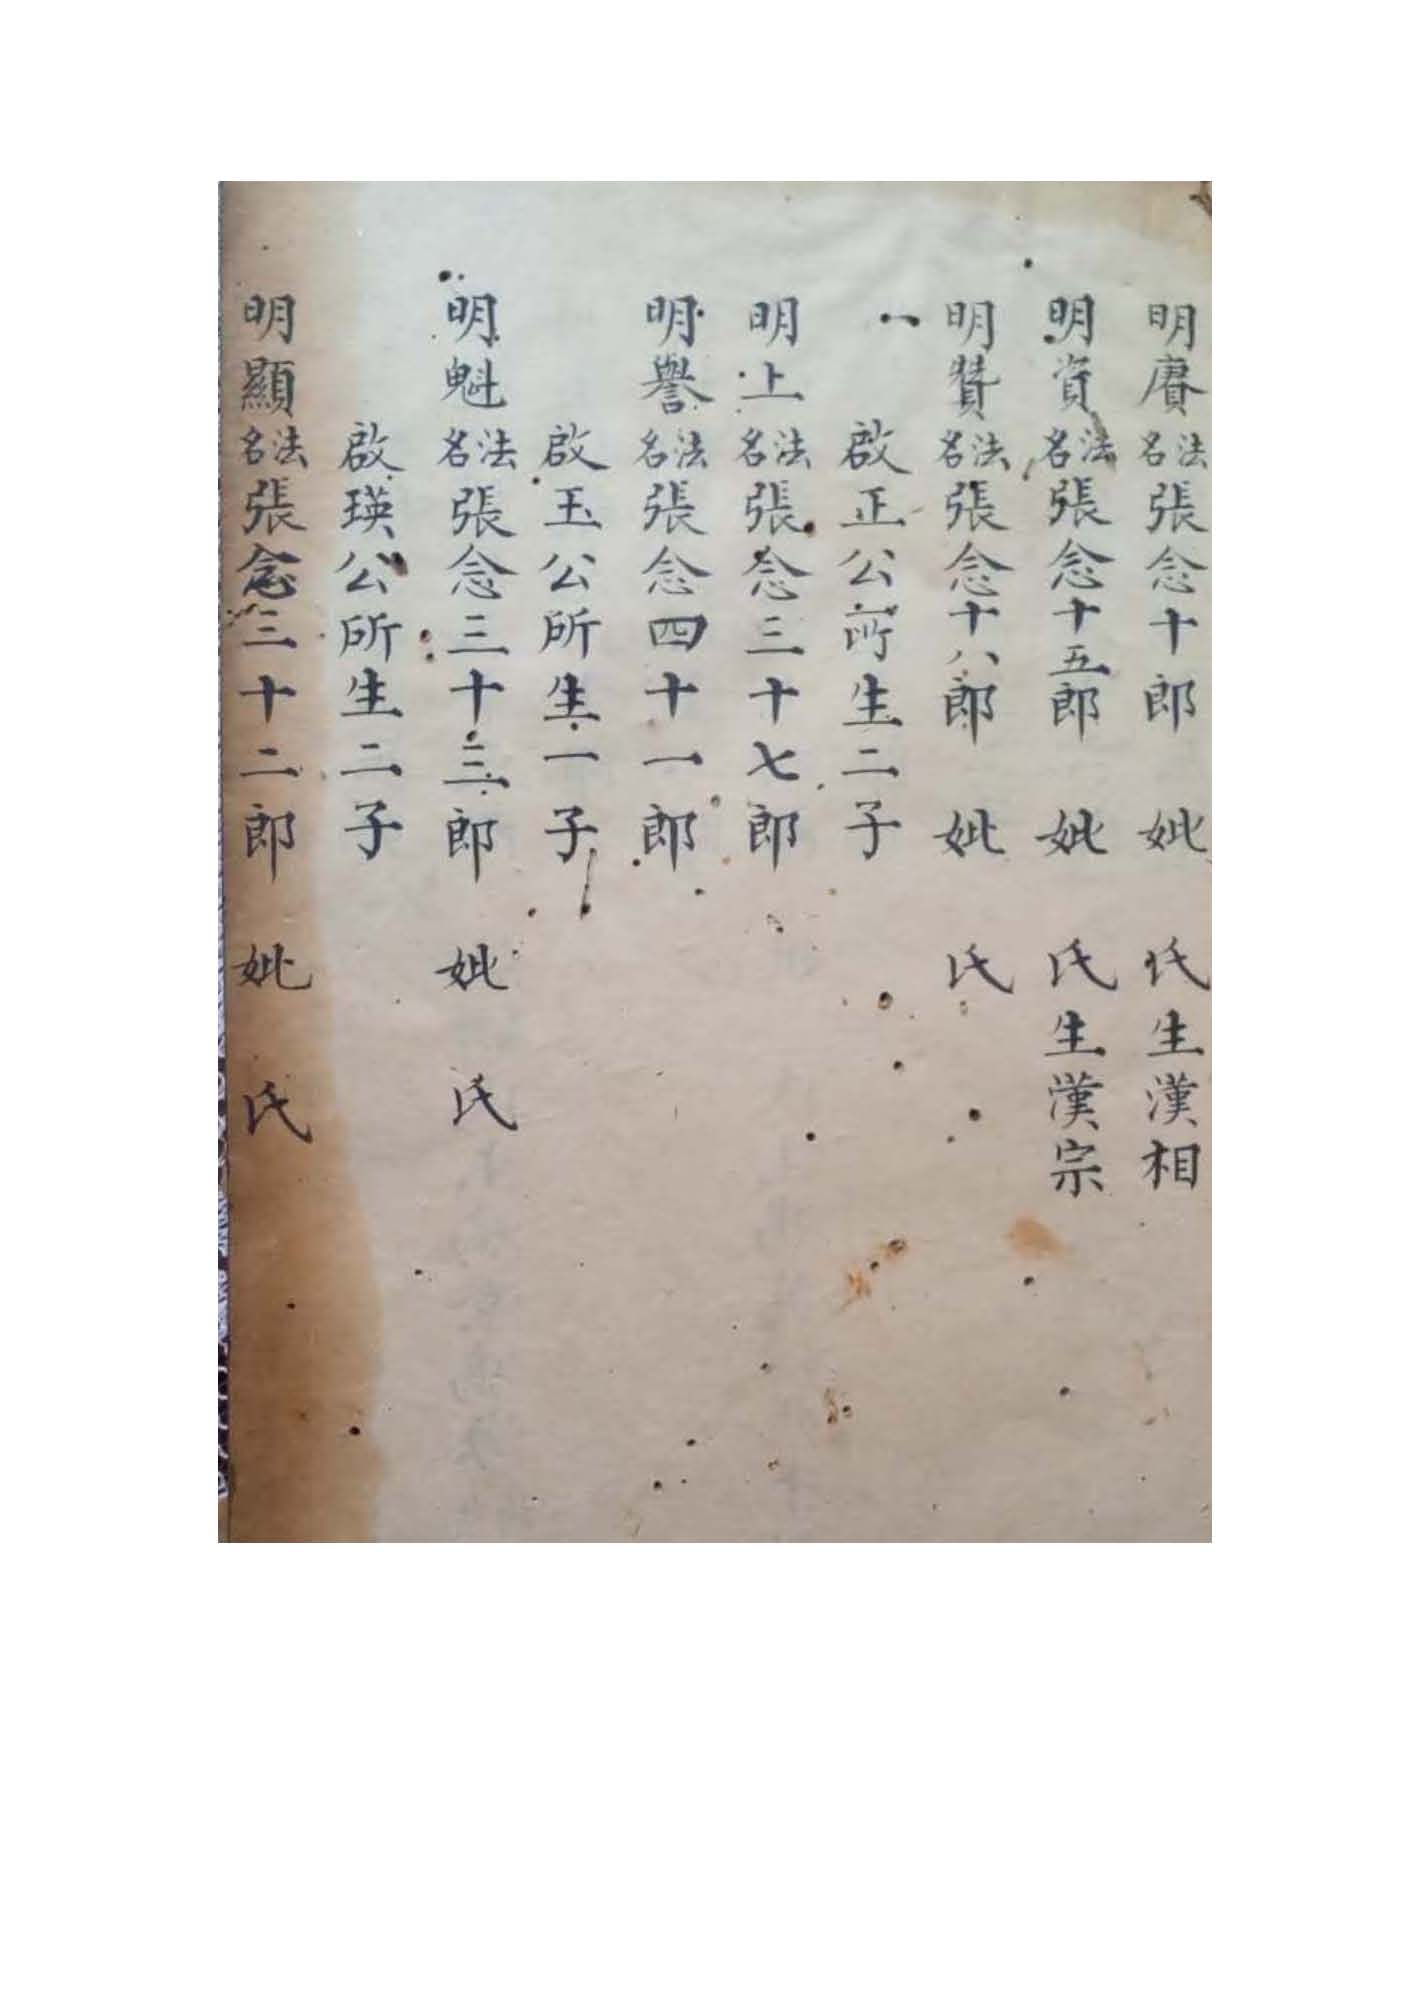 明賡法名張念十郎 妣 氏生漢相
明資法名張念十五郎 妣 氏生漢宗
明贊法名張念十八郎 妣 氏
一 啟正公所生二子
明上法名張念三十七郎
明譽法名張念四十一郎
啟玉公所生一子
明魁法名張念三十三郎 妣 氏
啟瑛公所生二子
明顯法名張念三十二郎 妣 氏